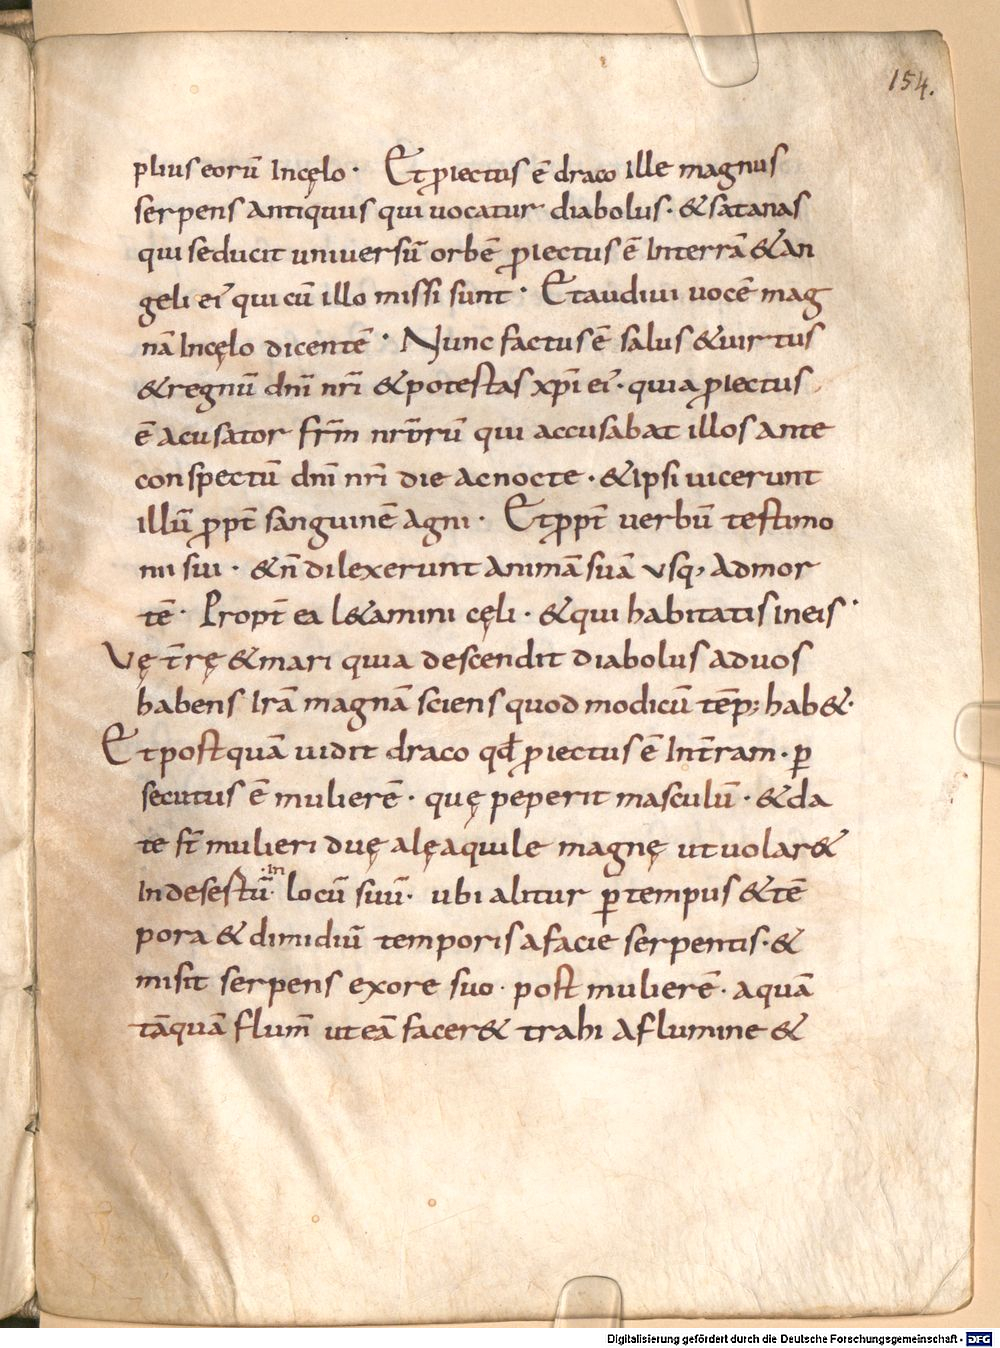 154.
plius eorū Incęlo · Et ꝓiectus ē draco ille magnus
serpens antiquus qui uocatur diabolus · & satanas
qui seducit uniuersū orbē ꝓiectus ē Interrā & an
geli ei' qui cū illo missi sunt · Et audiui uocē mag
nā Incęlo dicentē · Nunc factus ē salus & uirtus
& regnū dn̄i nr̄i & potestas xp̄i ei' · quia ꝓiectus
ē acusator fr̄m nr̄orū qui accusabat illos ante
conspectū dn̄i nr̄i die ac nocte · & ipsi uicerunt
illū ꝓpt̄ sanguinē agni · Et ꝓpt̄ uerbū testimo
nii sui · & n̄ dilexerunt animā suā usq; admor
tē · Propt̄ ea l&amini cęli · & qui habitatis ineis ·
Vę t̄rę & mari quia descendit diabolus aduos
habens Irā magnā sciens quod modicū tēp; hab& ·
Et postquā uidit draco qd̄ ꝓiectus ē Int̄ram · ꝑ
secutus ē mulierē · quę peperit masculū · & da
te st̄ mulieri duę alę aquile magnę ut uolar&
In desestū · :In locū suū · ubi alitur ꝑ tempus & tē
pora & dimidiū temporis a facie serpentis · &
misit serpens exore suo · post mulierē · aquā
tāquā flum̄ ut eā facer& trahi a flumine &
Digitalisierung gefördert durch die Deutsche Forschungsgemeinschaft - DFG